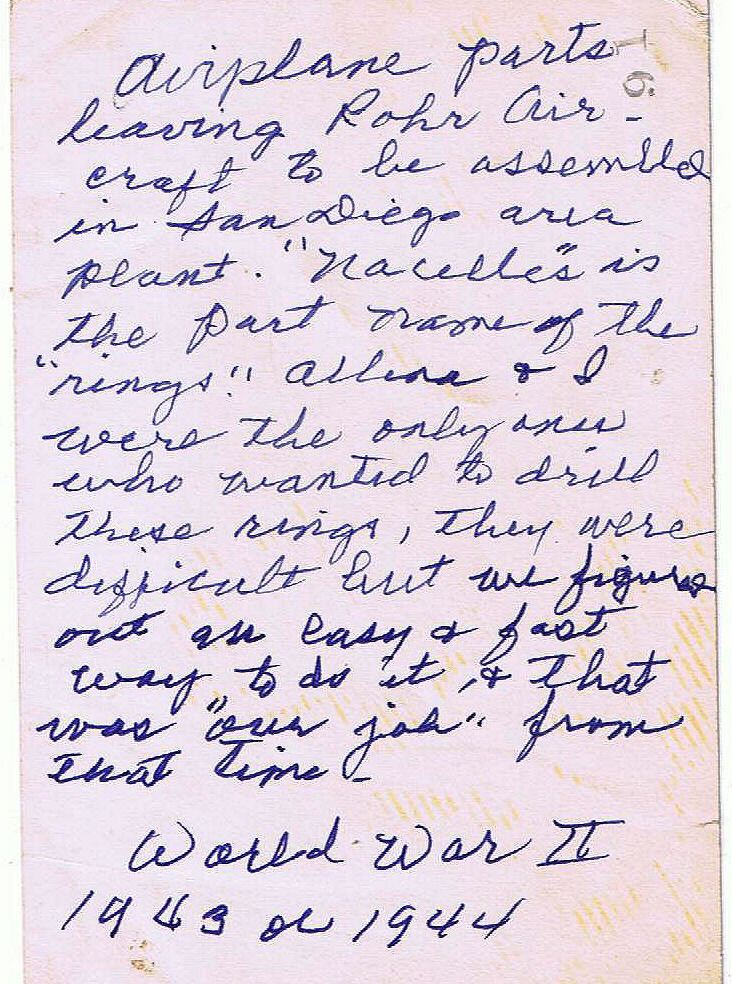 Airplane parts
leaving Rohr Air-
craft to be assembled
in San Diego area
plant. "Nacelles" is
the part name of the
"rings". Allena & I
were the only ones
who wanted to drill
these rings, they were
difficult but we figured
out an easy & fast
way to do it, & that
was "our job" from
that time -
World War II
1943 or 1944